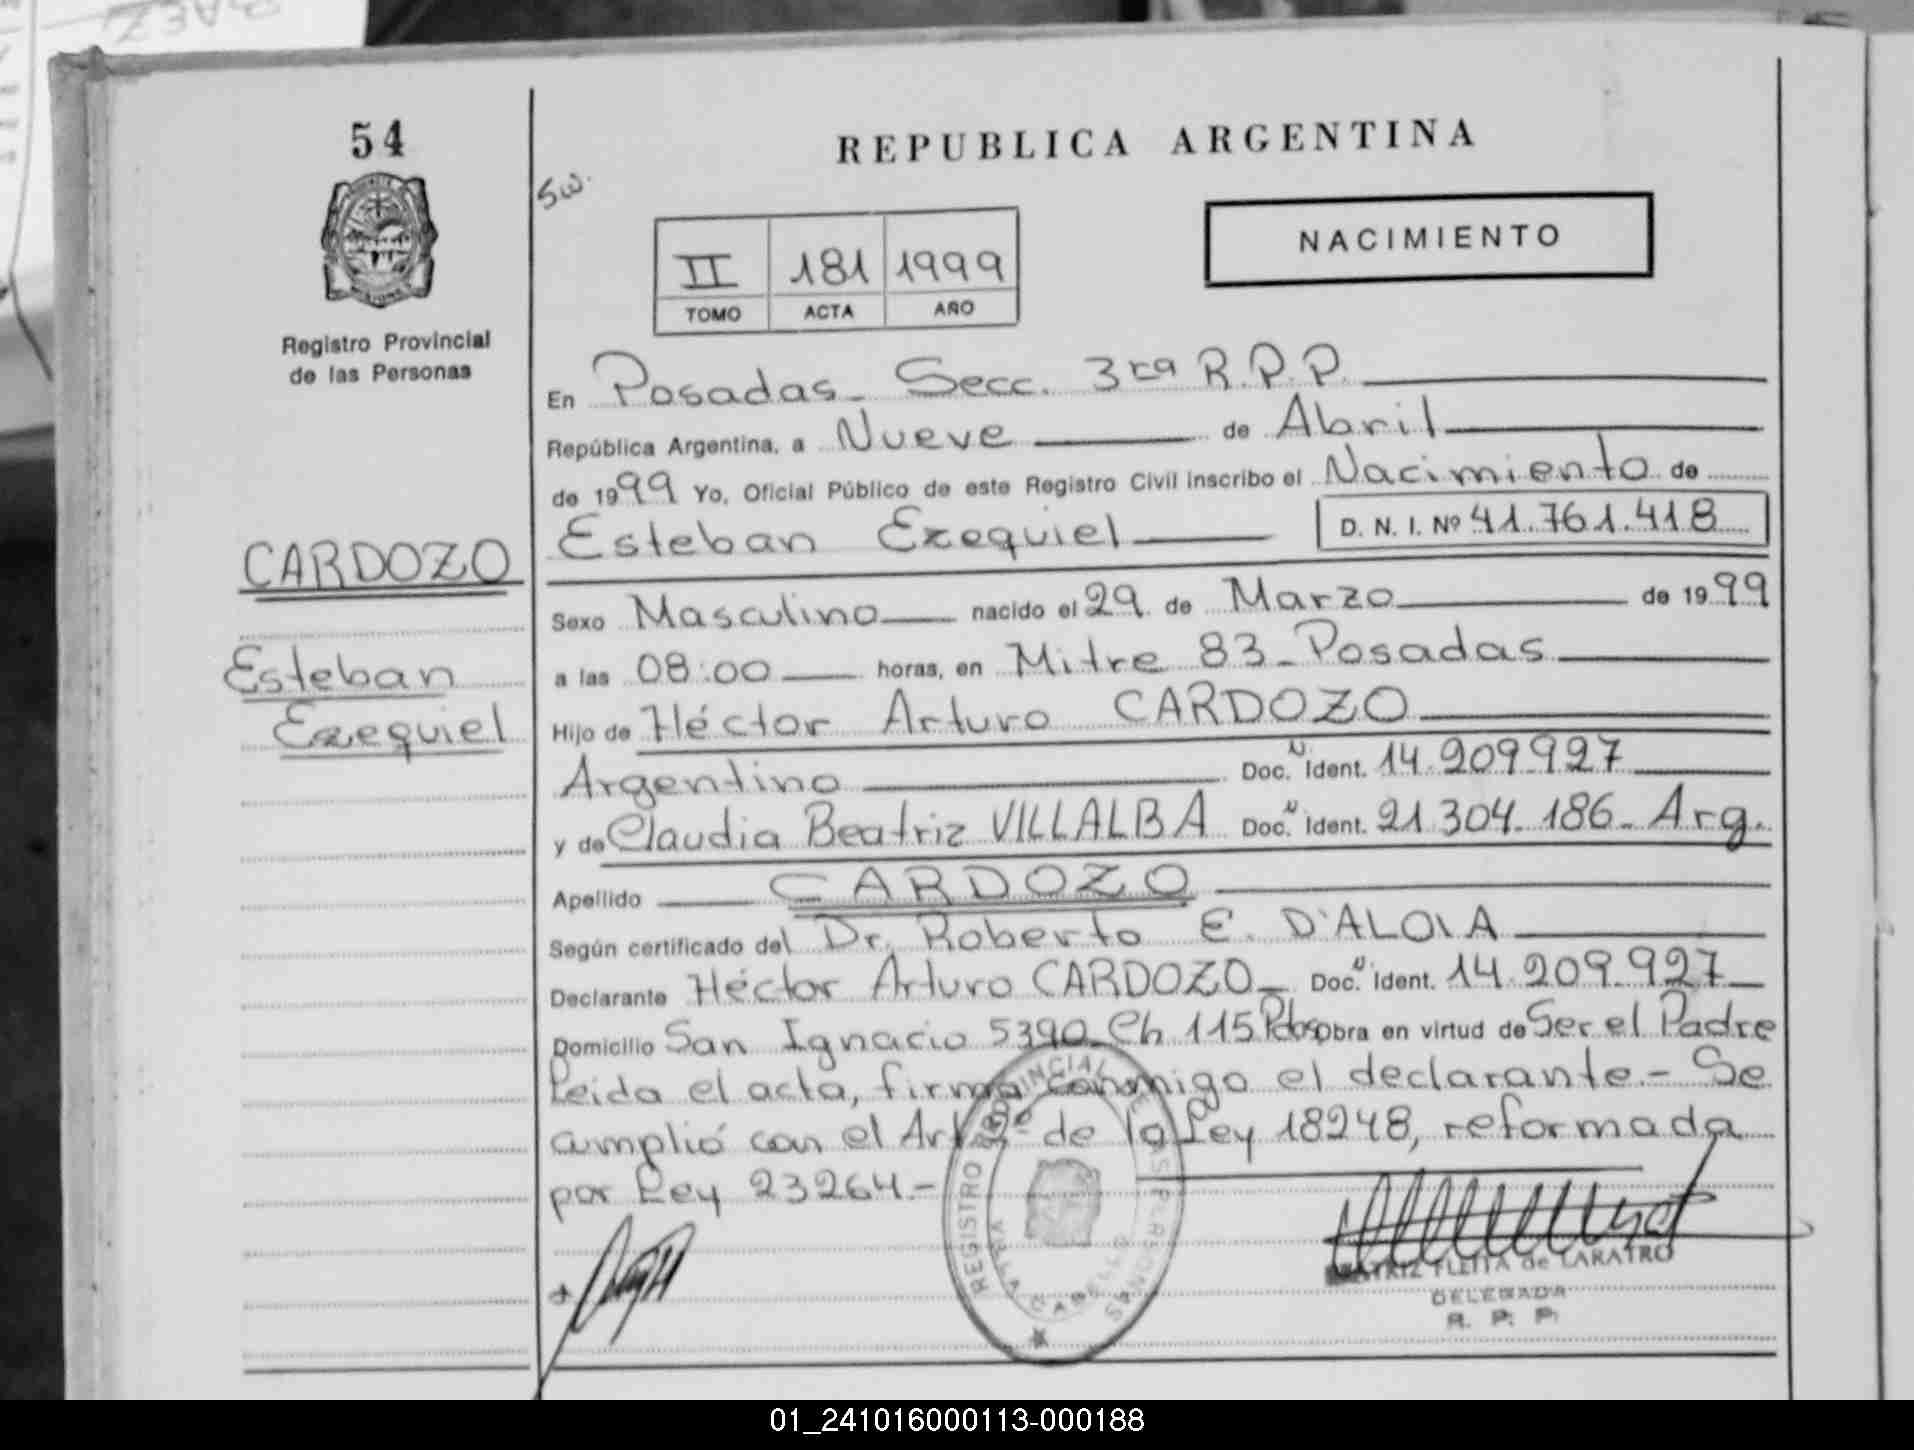 54
REPUBLICA ARGENTINA
Sw.
NACIMIENTO
II 181 1999
TOMO ACTA AÑO
Registro Provincial
de las Personas
En Posadas - Secc. 3ra R.P.P.
República Argentina, a Nueve de Abril
de 1999 Yo, Oficial Público de este Registro Civil inscribo el Nacimiento de
Esteban Ezequiel D. N. I. Nº 41.761.418
CARDOZO
Esteban
Ezequiel
Sexo Masculino nacido el 29 de Marzo de 1999
a las 08:00 horas, en Mitre 83 - Posadas
Hijo de Héctor Arturo CARDOZO
Argentino Doc. N Ident. 14.209.927
y de Claudia Beatriz VILLALBA Doc. N Ident. 21.304.186 - Arg.
Apellido CARDOZO
Según certificado del Dr. Roberto E. D'ALOIA
Declarante Héctor Arturo CARDOZO - Doc. N Ident. 14.209.927
Domicilio San Ignacio 5390 - Ch 115 Pdas obra en virtud de Ser el Padre
Leida el acta, firma conmigo el declarante.- Se
cumplió con el Art. de la Ley 18248, reformada
por Ley 23264.-
REGISTRO PROVINCIAL DE LAS PERSONAS
VILLA CABELLO
BEATRIZ FLEITA de LARATRO
DELEGADA
R. P. P.
01_241016000113-000188